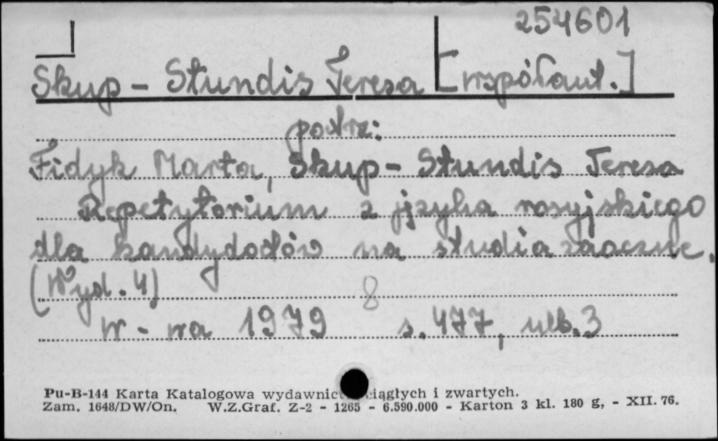 254601
Skup - Stundis Teresa [współaut.]
patrz:
Fidyk Marta, Skup - Stundis Teresa
Repetytorium z języka rosyjskiego
dla kandydatów na studia zaoczne.
(Wyd. 4) 8
W-wa 1979 s. 477, nlb. 3
Pu-B-144 Karta Katalogowa wydawnict ciągłych i zwartych.
Zam. 1648/DW/On. W.Z.Graf. Z-2 - 1265 - 6.590.000 - Karton 3 kl. 180 g, - XII. 76.